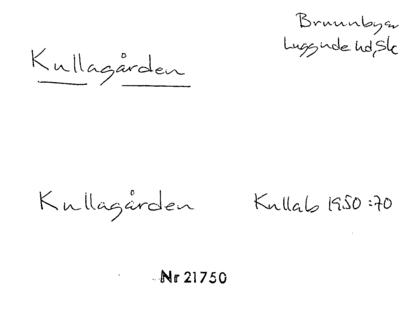 Brunnby sn
Luggude hd, Sk
Kullagården
Kullagården Kullab 1950:70
Nr 21750